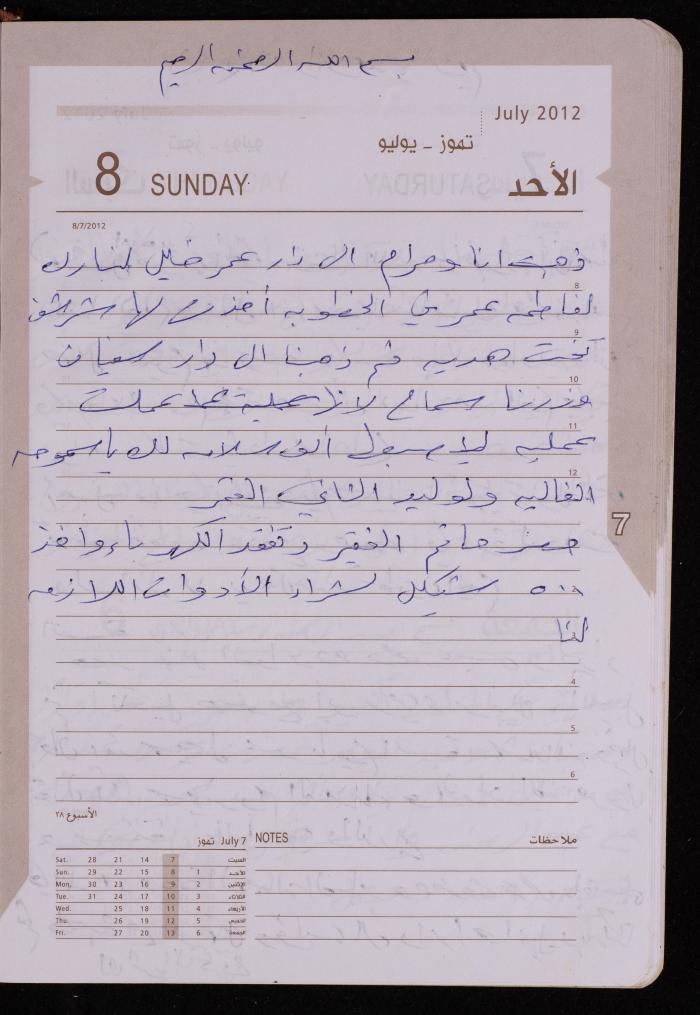 بسم الله الرحمن الرحيم
July 2012
تموز - يوليو
8 SUNDAY الأحد
8/7/2012
ذهبت انا ومرام الى دار عمر خليل لنبارك
8
لفاطمه عمر في الخطوبه أخذت لها شرشف
9
تخت هديه ثم ذهبنا الى دار سفيان
10
وزرنا سماح لانها عملت
11
عمليه ألف سلامه لك يا سموحه
12
الغاليه ولوليد الثاني العقر
7
حضر حاتم الفقير وتفقد الكهرباء واخذ
٥٠٠ شيكل لشراء الأدوات اللازمه
لنا
4
5
6
الأسبوع ٢٨
July 7 تموز
NOTES ملاحظات
Sat. 28 21 14 7 السبت
Sun. 29 22 15 8 1 الأحد
Mon. 30 23 16 9 2 الإثنين
Tue. 31 24 17 10 3 الثلاثاء
Wed. 25 18 11 4 الأربعاء
Thu. 26 19 12 5 الخميس
Fri. 27 20 13 6 الجمعة